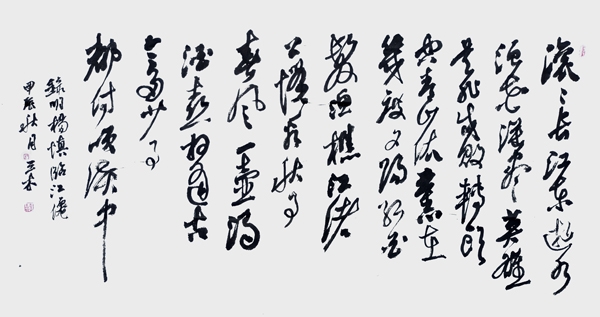 滚滚长江东逝水
浪花淘尽英雄
是非成败轉頭
空青山依舊在
幾度夕陽紅白
髮渔樵江渚
上惯看秋月
春风一壶濁
酒喜相逢古
今多少事
都付笑談中
錄明楊慎臨江僊
甲辰秋月